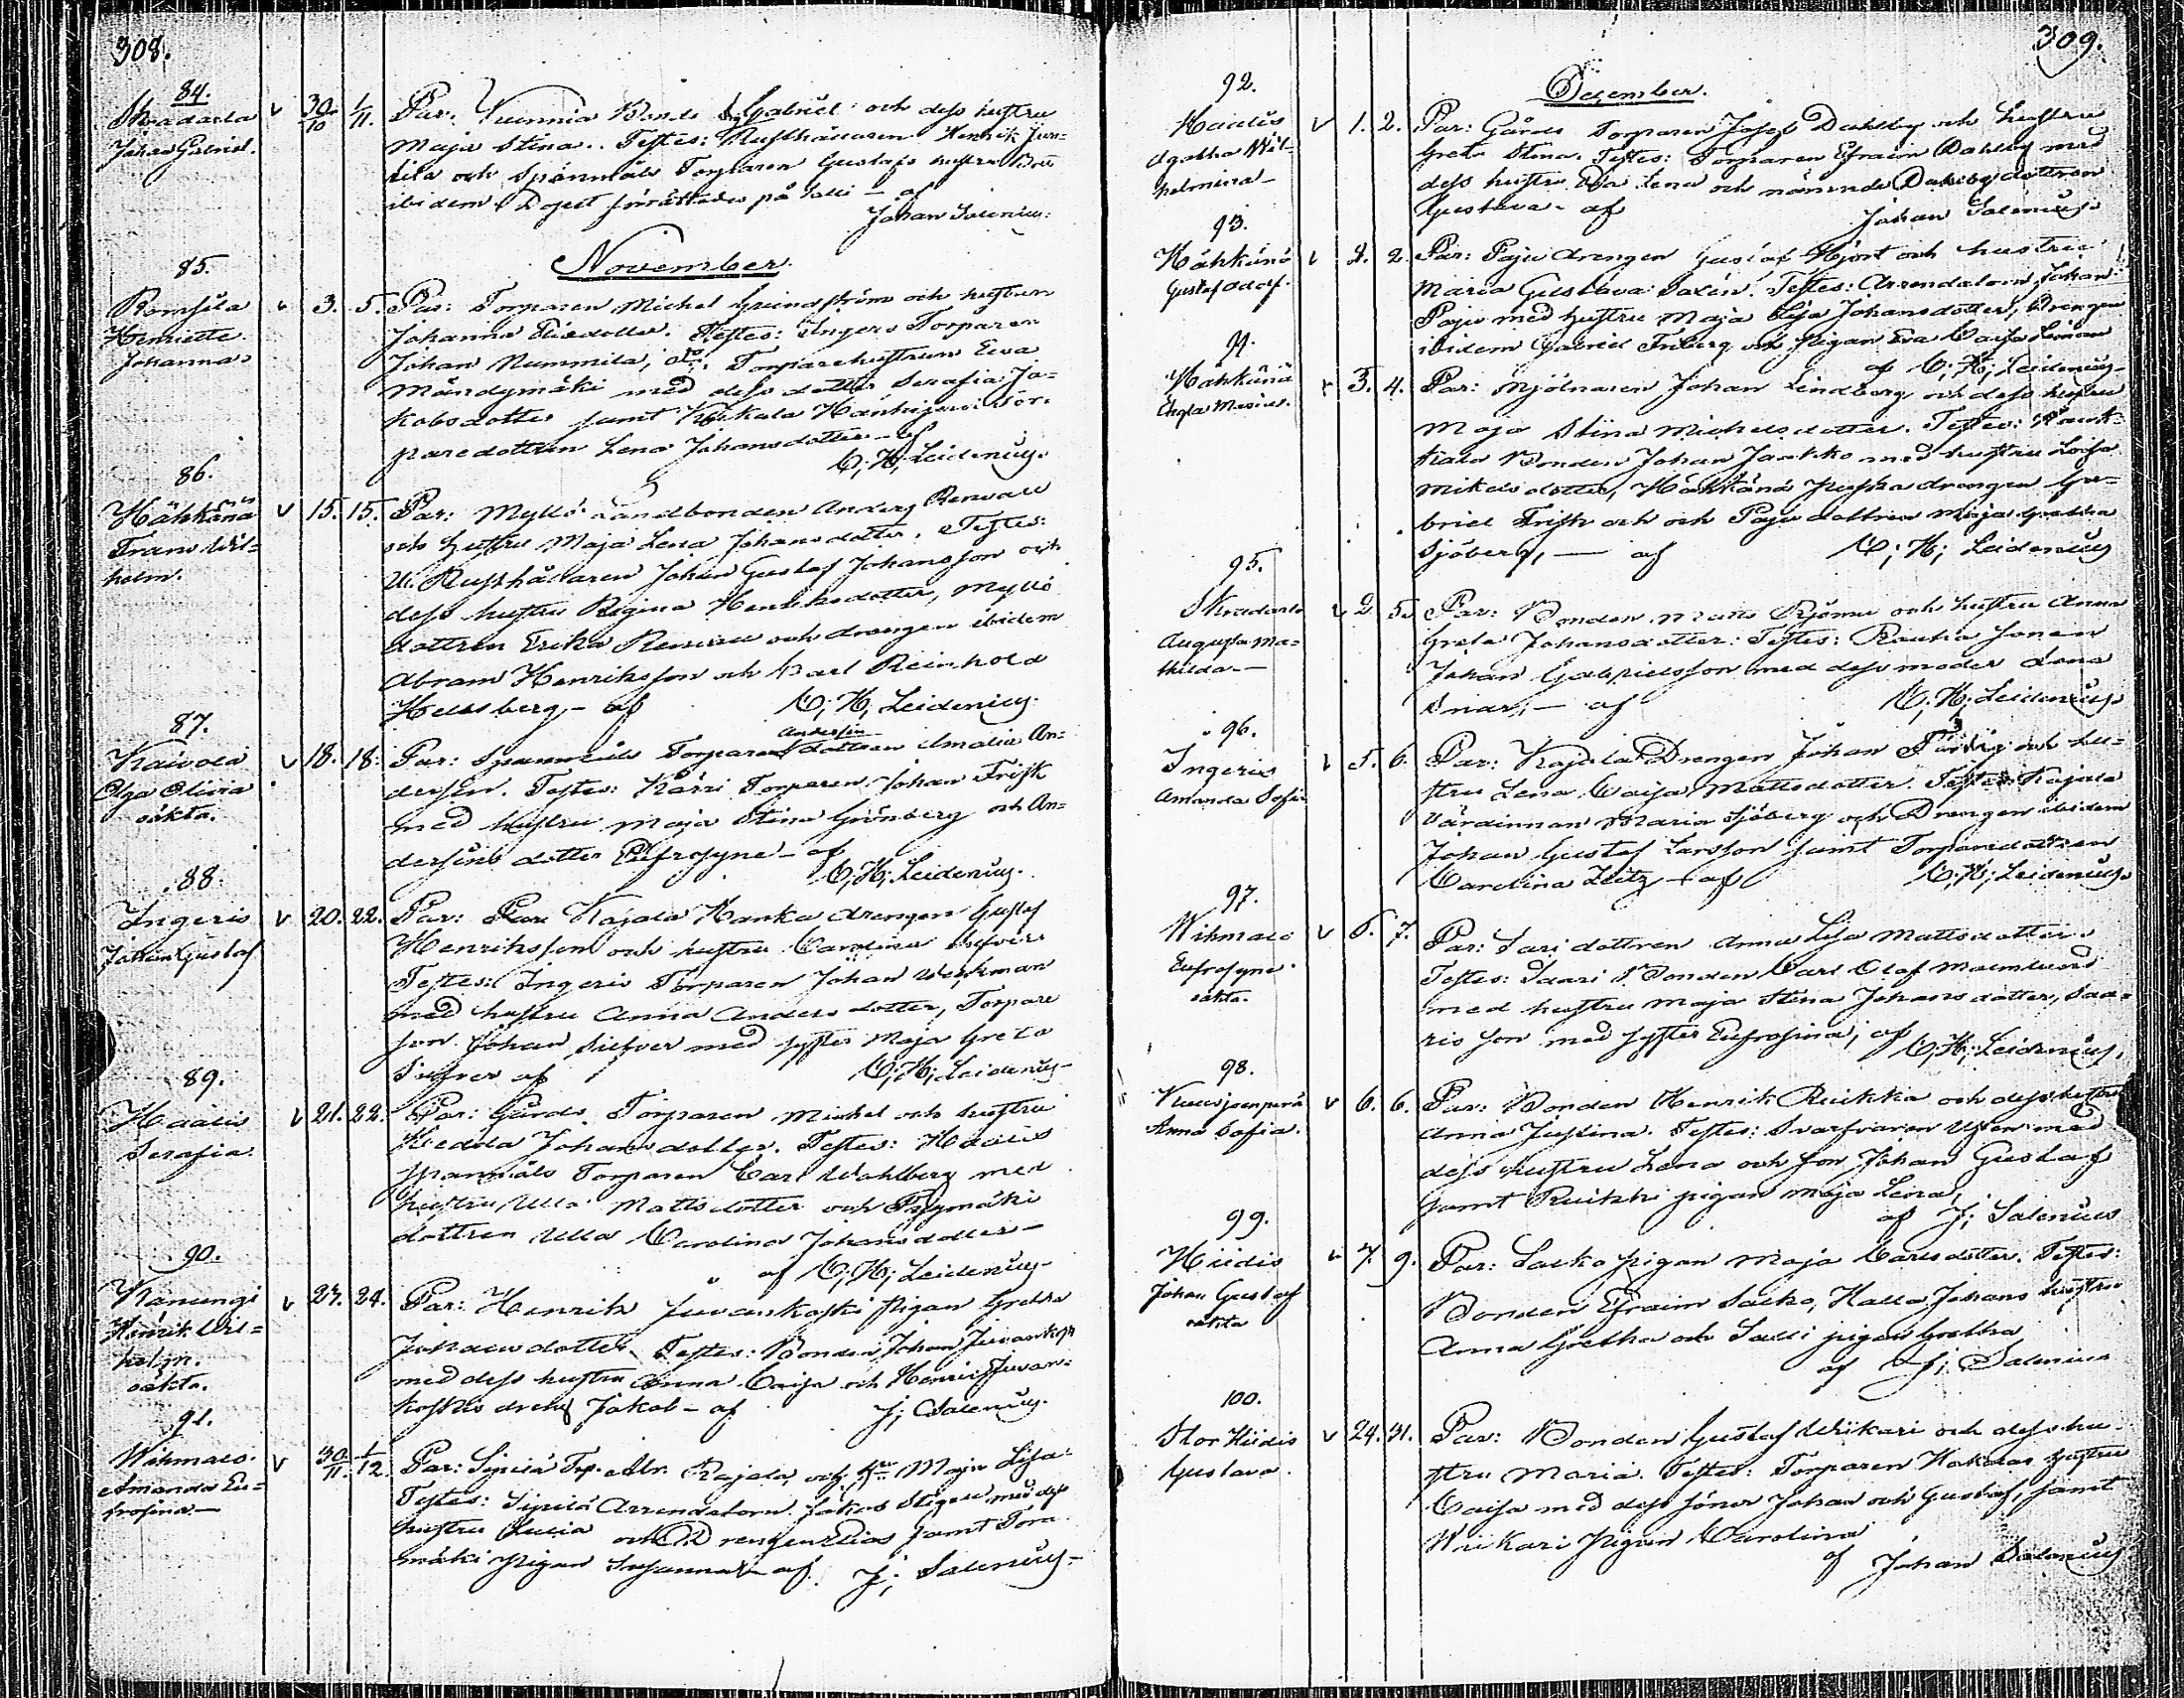 308.
84.
Skadarla
Johan Gabriel.
30/10 1/11.
Par. Bonde Gabriel och dess hustru
Maja Stina. Testes: Rusthållaren Henrik Jun-
tila och Spånmåls Torparen Gustafs hustru
ibidem. Dopet förrättades på Salli – af
Johan Salenius.
November.
85.
Romsila
Henriette
Johanna.
3. 5.
Par: Torparen Michel Grundström och hustrun
Johanna . Testes: Ingeris Torparen
Johan Nummila, do. Torparehustrun Eva
Mändymäki med dess dotter Serafia Ja-
kobsdotter samt Tor-
paredottren Lena Johansdotter – af
C; H; Leidenius.
86.
Hähkänä
Frans Wil-
helm.
15. 15.
Par: Myllö Landbonden Anders Renwall
och hustru Maja Lena Johansdotter. Testes:
U. Rusthållaren Johan Gustaf Johansson och
dess hustru Regina Henriksdotter, Myllö
dottren Erika och drengen ibidem
Abram Henriksson och Carl Reinhold
Hellsberg – af C; H; Leidenius.
87.
Kaivola
Olga Olivia
oäkta.
18. 18.
Par: Spanmåls Torparen dottren Amalia An-
dersin. Testes: Kärri Torparen Johan Frisk
med hustru Maja Stina Grönberg och An-
dersins dotter Eufrosyne – af
C; H; Leidenius.
88.
Ingeris
Johan Gustaf
20. 22.
Par: Kajala Hanka drengen Gustaf
Henriksson och hustru Carolina Silfver.
Testes: Ingeris Torparen Johan Wenman
med hustru Anna Andersdotter, Torpare
son Johan Silfver med syster Maja Greta
Silfver af C; H; Leidenius
89.
Haalis
Serafia.
21. 22.
Par: Gårds Torparen Michel och hustru
Hedda Johansdotter. Testes: Haalis
Spanmåls Torparen Carl Wahlberg med
hustru Ulla Mattsdotter och
dottren Ulla Carolina Johansdotter –
af C; H; Leidenius
90.
Kanungi
Henrik Wil-
helm.
oäkta.
24.
Par: Henrik Juvankoski Pigan Gretha
Johansdotter. Testes: Bonden Johan Juvankoski
med dess hustru Anna Caisa och Henrik Juvan-
koskis dreng Jakob – af J; Salenius.
91.
Wihmalo.
Amanda Eu-
frosina. –
30/11. 1/12.
Par: Sipilä Trp. Abr. Rajala, och Hu Maja Lisa.
Testes: Sipilä Arrendatorn Jakob med dess
hustru Lucia och Drengen Elias samt
mäki pigan Susanna – af. J; Salenius –
309.
December.
92.
Haalis
Agatha Wil-
helmina –
1. 2.
Par: Gårds Torparen Josef Dahlby och hustru
Greta Stina. Testes: Torparen Efraim Dahlby med
dess hustru Eva Lena och nämnde Dahlbys dottren
Gustava – af Johan Salenius
93.
Hähkänä
Gustaf Adolf.
2. 2.
Par: Paju drengen Gustaf Hjort och hustru
Maria Gustava Salén. Testes: Arrendatorn Johan
Paju med hustru Maja Lisa Johansdotter, Drengen
ibidem Gabriel Friberg och Pigan Eva Caisa
af C; H; Leidenius
94.
Hähkänä
3. 4.
Par: Mjölnaren Johan Lindberg och dess hustru
Maja Stina Michelsdotter. Testes:
Bonden Johan Jaakko med hustru Loisa
Mikelsdotter, Hähkänä drengen Ga-
briel Frisk och och Paju dottren Maja Gretha
Sjöberg, – af C; H; Leidenius
95.
Skadarla
Augusta Ma-
thilda –
2 5.
Par: Bonden Matts och hustru Anna
Greta Johansdotter. Testes: Rauha sonen
Johan Gabrielsson med dess moder Lena
– af C; H; Leidenius
96.
Ingeris
Amanda Sofia
5. 6.
Par: Kajala Drengen Johan och hu-
stru Lena Caisa Mattsdotter. Testes: Kajala
Värdinnan Maria Sjöberg och Drengen ibidem
Johan Gustaf Larsson samt Torparedottren
Carolina Leitz – af C; H; Leidenius
97.
Wihmalo
Eufrosyne.
oäkta.
6. 7.
Par: Sari dottren Anna Lisa Mattsdotter.
Testes: Saari Bonden Carl Olof Malmlund
med hustru Maja Stina Johansdotter, Saa-
ris son med syster Eufrosina; af C; H; Leidenius.
98.
Anna Sofia.
6. 6.
Par: Bonden Henrik Ruikka och dess hustru
Anna Justina. Testes: Svarfvaren med
dess hustru Lena och son Johan Gustaf
samt Ruikki pigan Maja Lena,
af J; Salenius
99.
Hiidis
Johan Gustaf
oäkta
7. 9.
Par: Salko pigan Maja Carlsdotter. Testes:
Bonden Efraim Salko, Halla Johans hustru
Anna Gretha och Salli pigan Gretha
af J; Salenius
100.
Stor Hiidis
Gustava.
24. 31.
Par: Bonden Gustaf Wiikari och dess hu-
stru Maria. Testes: Torparen Hakalas hustru
Caisa med dess söner Johan och Gustaf, samt
Wiikari Pigan Carolina
af Johan Salenius